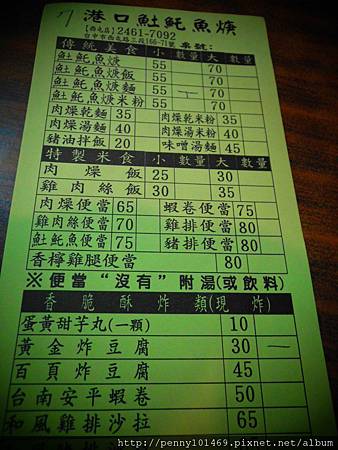 港口魠魠魚焿
【西屯店】2461-7092
台中市西屯路三段166-71號 桌號:
傳統美食 小 數量 大 數量
魠魠魚焿 55 70
魠魠魚焿飯 55 70
魠魠魚焿麵 55 一 70
魠魠魚焿米粉 55 70
肉燥乾麵 35 肉燥乾米粉 35
肉燥湯麵 40 肉燥湯米粉 40
豬油拌飯 20 味噌湯麵 45
特製米食 小 數量 大 數量
肉燥飯 25 30
雞肉絲飯 30 35
肉燥便當 65 蝦卷便當 75
雞肉絲便當 70 雞排便當 80
魠魠魚便當 75 豬排便當 80
香檸雞腿便當 80
※便當“沒有”附湯(或飲料)
香脆酥炸類(現炸)
蛋黃甜芋丸(一顆) 10
黃金炸豆腐 30 一
百頁炸豆腐 45
台南安平蝦卷 50
和風雞排沙拉 65
http://penny101469.pixnet.net/album